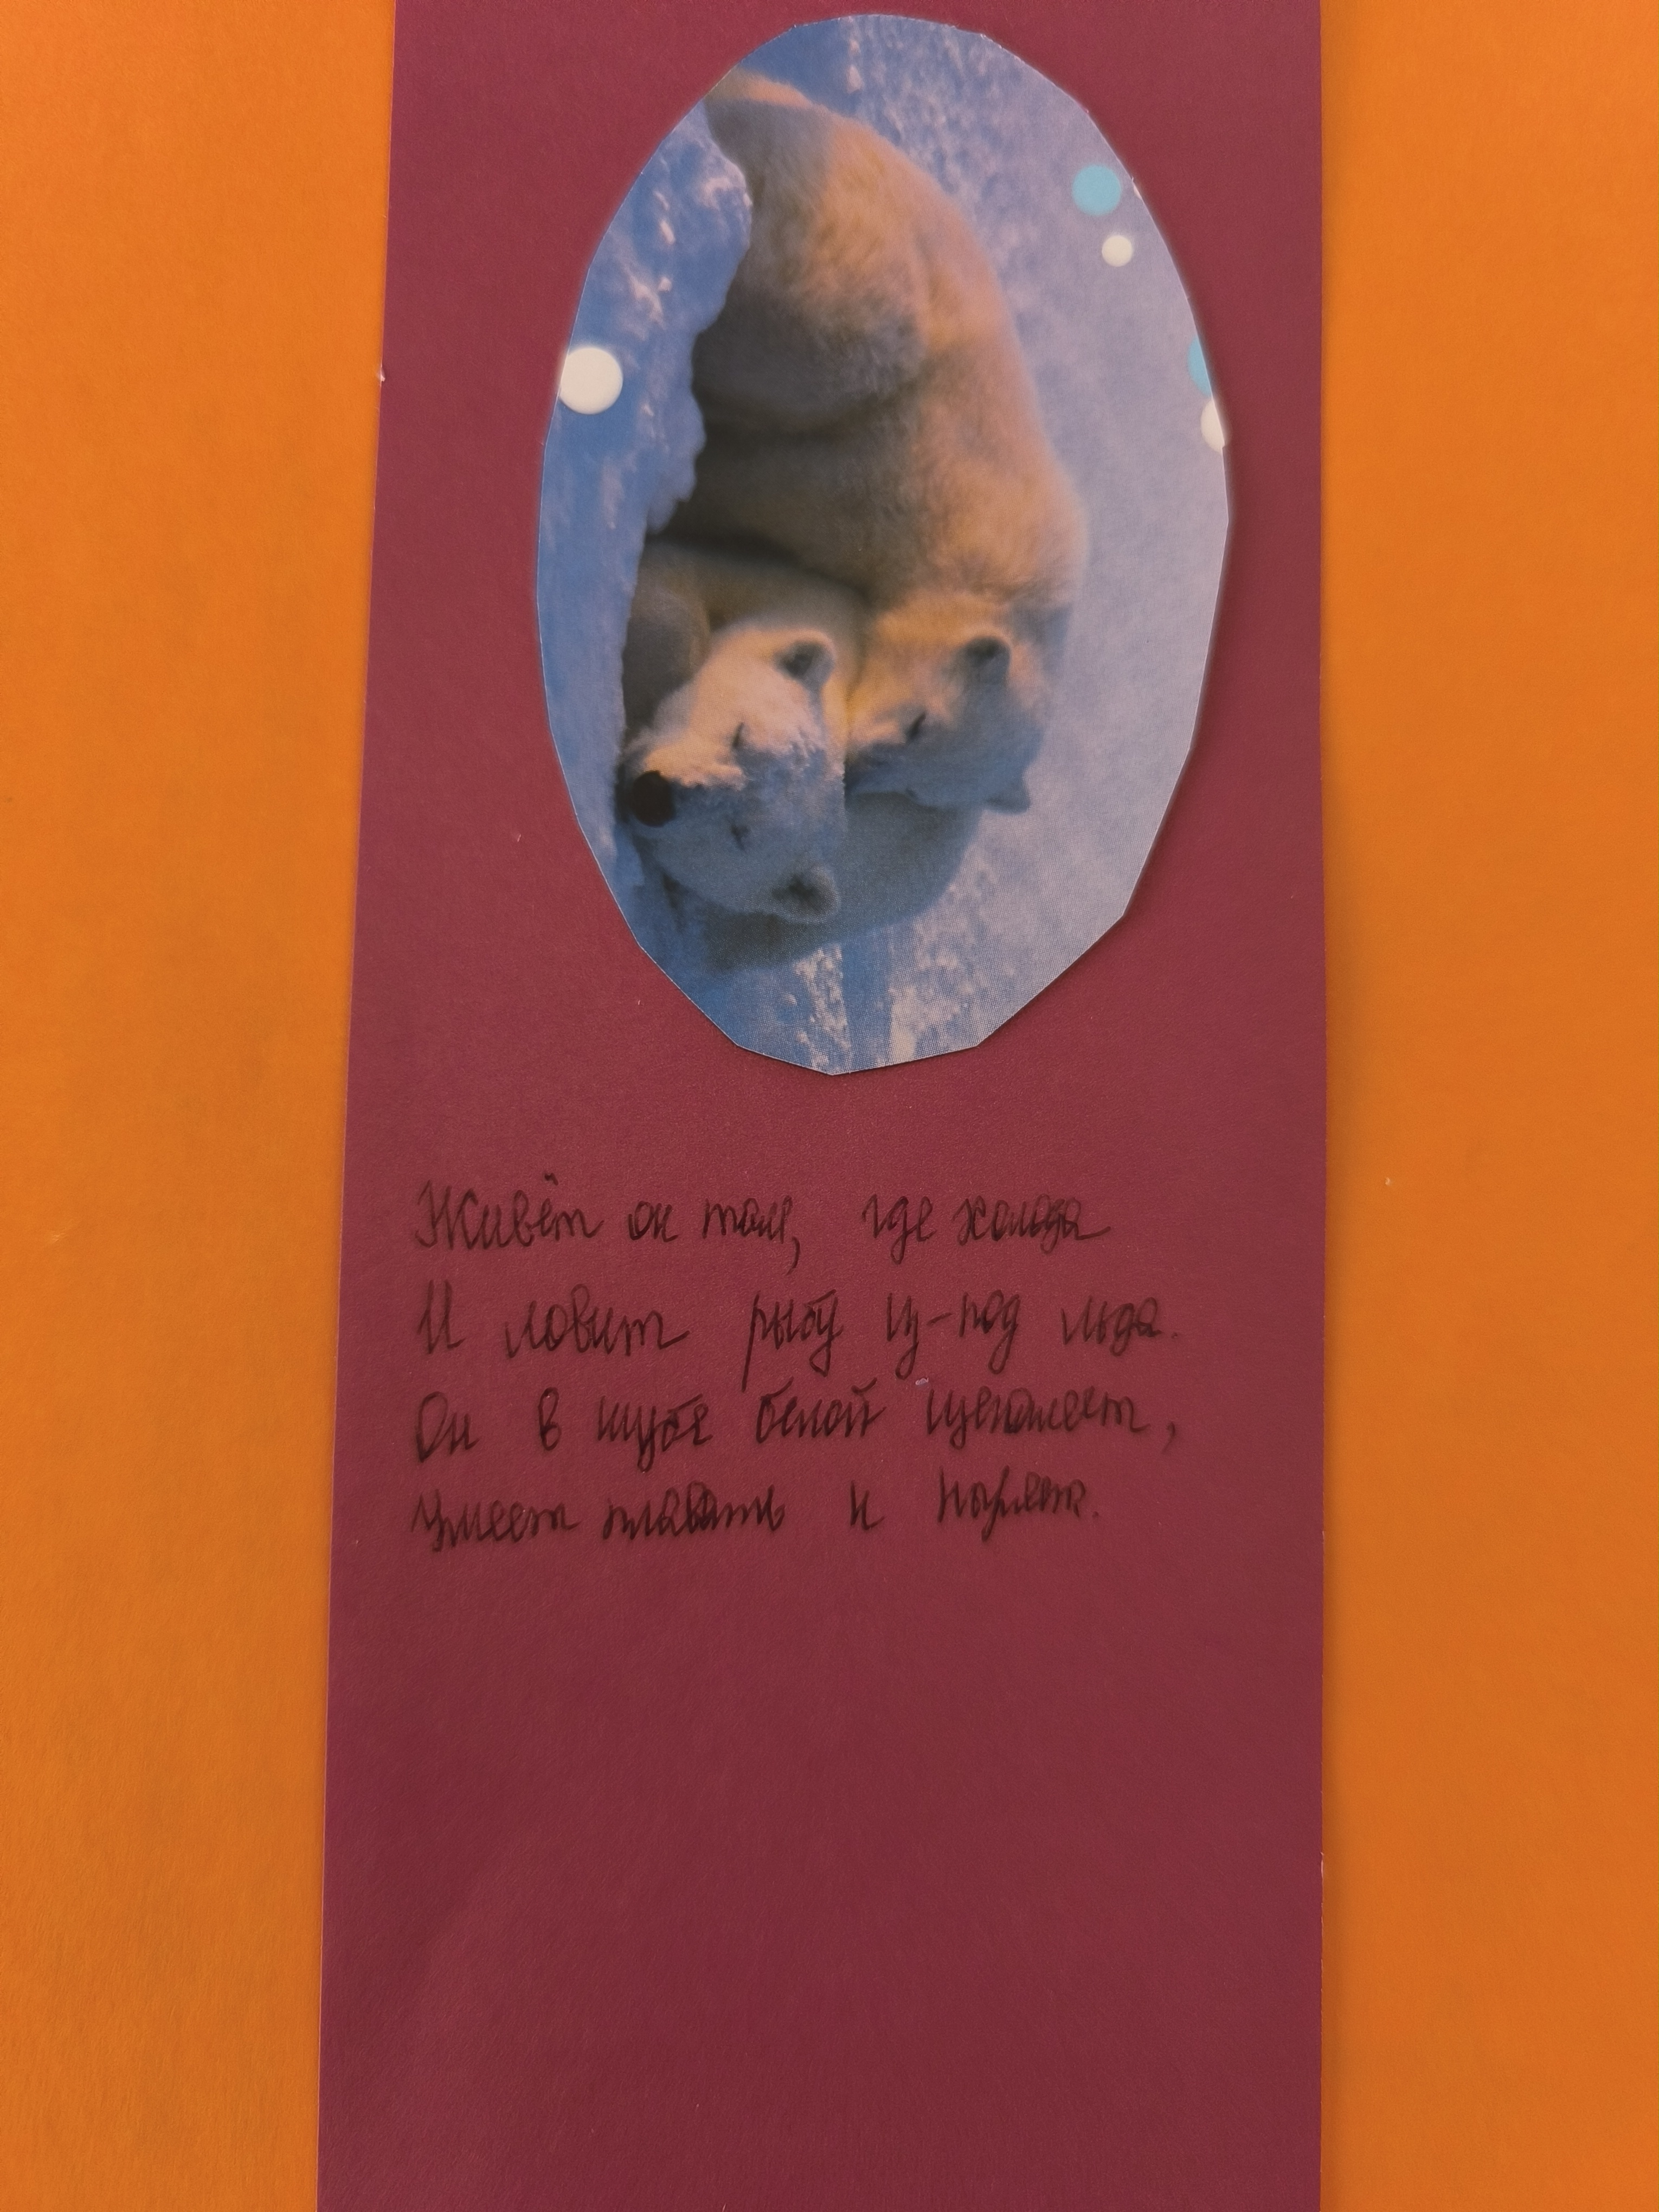 Живёт он там, где холода
И ловит рыбу из-под льда.
Он в шубе белой щеголяет,
Умеет плавать и ныряет.